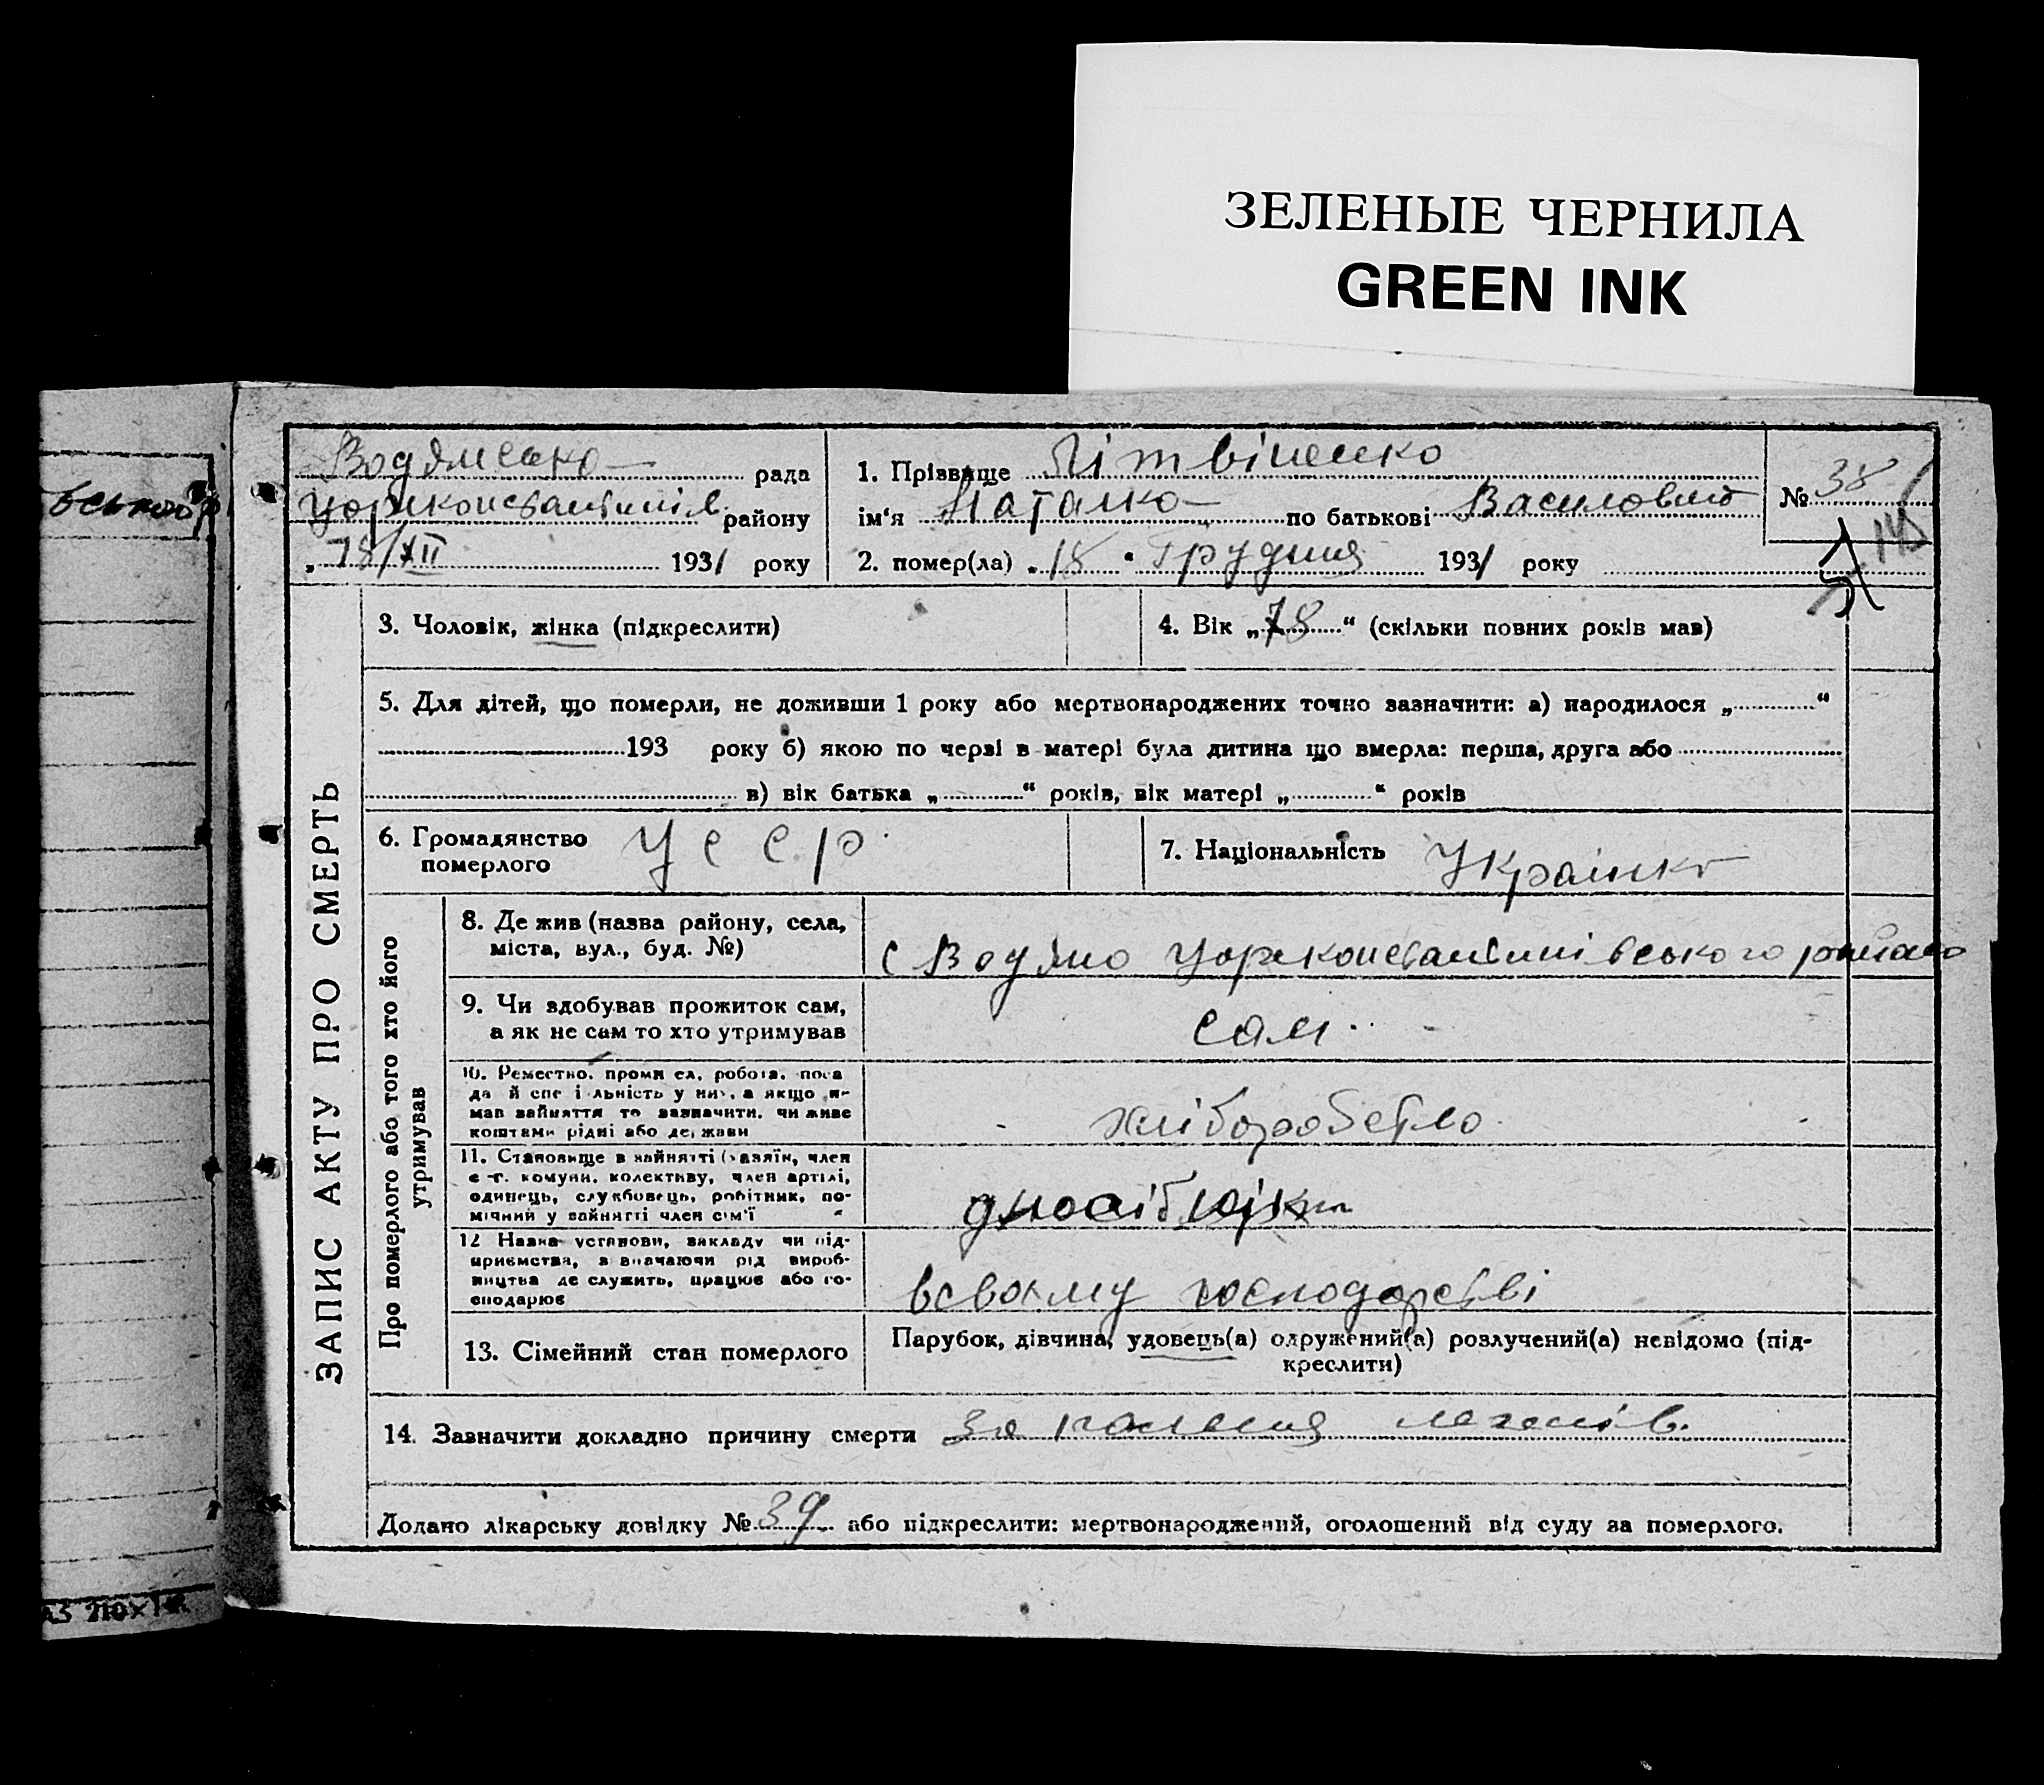 ЗЕЛЕНЫЕ ЧЕРНИЛА
GREEN INK
Водянська рада
Цареконстантинів. району
„18/XII 1931 року
1. Прізвище Літвіненко
ім‘я Наталка по батькові Василовна
2. помер(ла) „18 “ Грудня 1931 року
№ 38
ЗАПИС АКТУ ПРО СМЕРТЬ
3. Чоловік, жінка (підкреслити)
4. Вік „78“ (скільки повних років мав)
5. Для дітей, що померли, не доживши 1 року або мертвонароджених точно зазначити: а) народилося „ “
193 року б) якою по черзі в матері була дитина що вмерла: перша, друга або
в) вік батька „ “ років, вік матері „ “ років
6. Громадянство
померлого
УССР
7. Національність Українка
Про померлого або того хто його
утримував
8. Де жив (назва району, села,
міста, вул., буд. №)
с Водяно Цареконстантинівського района
9. Чи здобував прожиток сам,
а як не сам то хто утримував
сам
10. Ремество, промисел, робота, поса
да й спеціяльність у них, а якщо не
мав зайняття то зазначити, чи живе
коштами рідні або держави
хліборобство
11. Становище в зайнятті (хазяїн, член
с.-г. комуни, колективу, член артілі,
одинець, службовець, робітник, по-
мічний у зайнятті член сім‘ї
12 Назва установи, закладу чи під-
приємства, зазначаючи рід вироб-
ництва де служить, працює або го-
сподарює
всвоему господарстві
13. Сімейний стан померлого
Парубок, дівчина, удовець(а) одружений(а) розлучений(а) невідомо (під-
креслити)
14. Зазначити докладно причину смерти
Додано лікарську довідку № 39 або підкреслити: мертвонароджений, оголошений від суду за померлого.